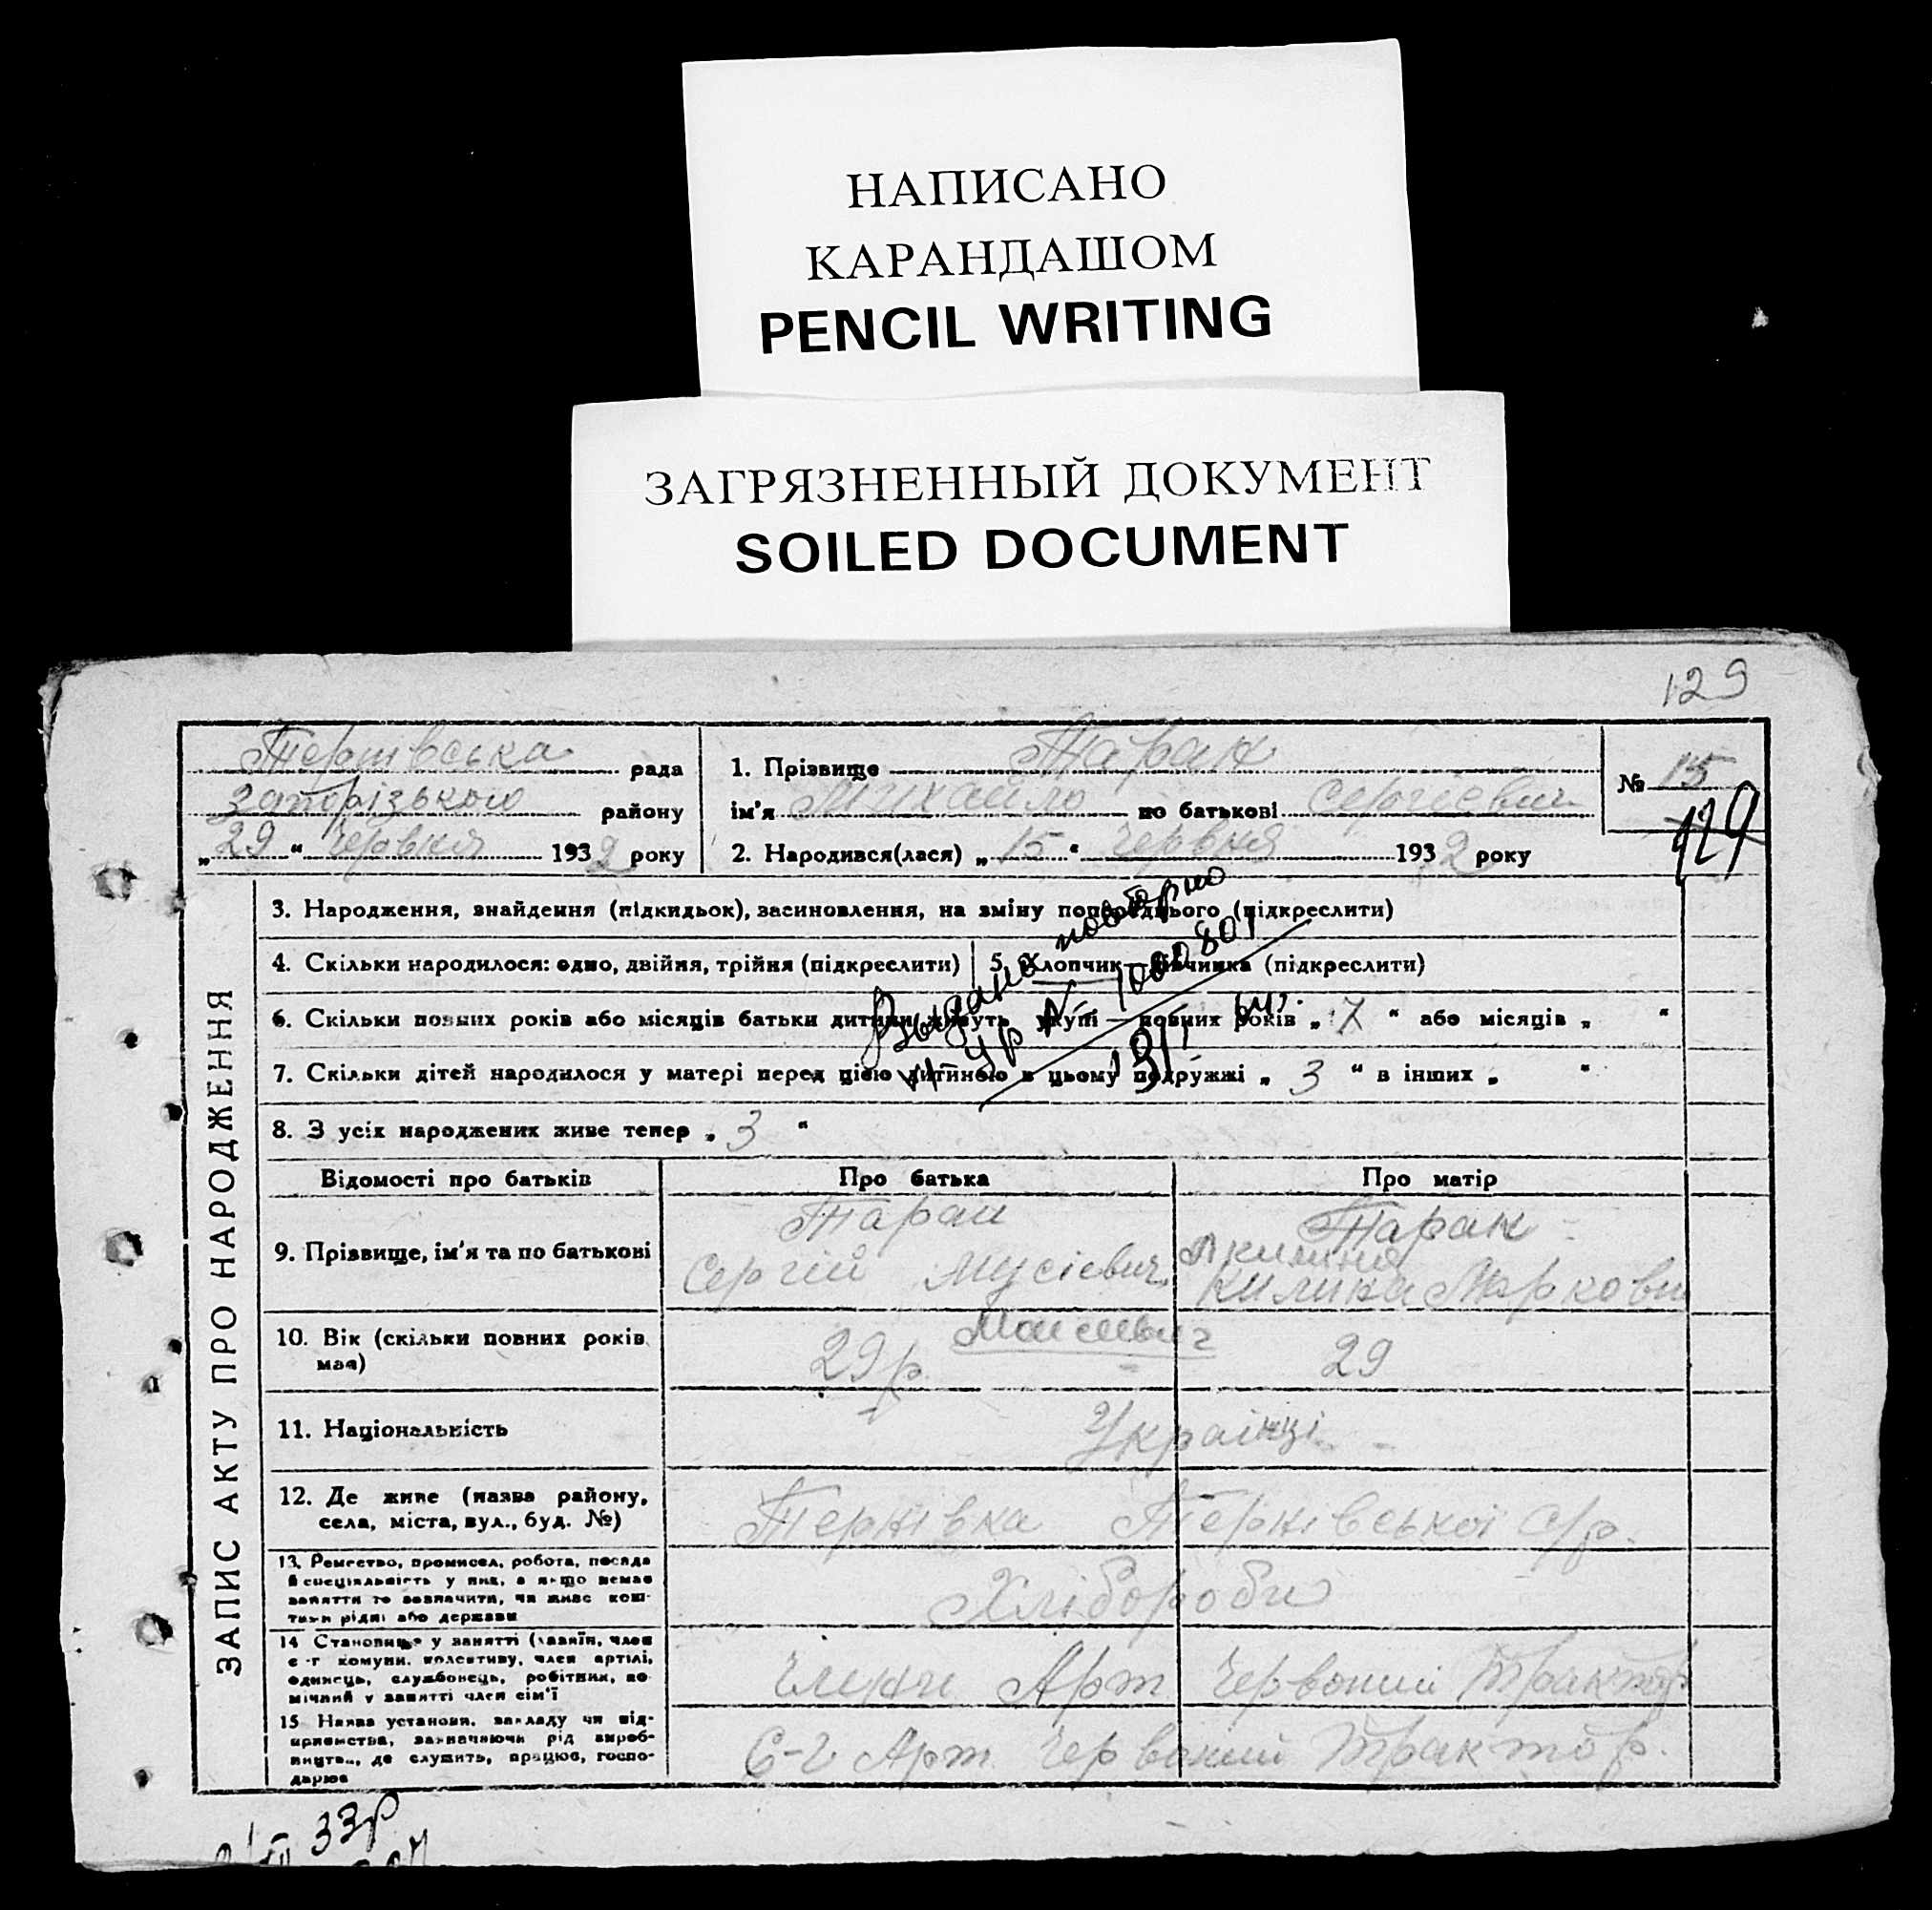 НАПИСАНО
КАРАНДАШОМ
PENCIL WRITING
ЗАГРЯЗНЕННЫЙ ДОКУМЕНТ
SOILED DOCUMENT
129
Тернівська рада
Запорізького району
„29“ Червня 1932 року
1. Прізвище Таран
ім'я Михайло по батькові Сергієвич
2. Народився(лася) „15“ Червня 1932 року
№ 115
129
ЗАПИС АКТУ ПРО НАРОДЖЕННЯ
3. Народження, знайдення (підкидьок), засиновлення, на зміну попереднього (підкреслити)
4. Скільки народилося: одно, двійня, трійня (підкреслити)
5. Хлопчик—дівчинка (підкреслити)
6. Скільки повних років або місяців батьки дитини живуть укупі — повних років „7“ або місяців „ “
7. Скільки дітей народилося у матері перед цією дитиною в цьому подружжі „3“ в інших „ “
8. З усіх народжених живе тепер „3“
повторно
Відомості про батьків
Про батька
Про матір
9. Прізвище, ім'я та по батькові
Таран
Сергій Мусієвич
Таран
Акилина
Килина Маркови
10. Вік (скільки повних років має)
29 р.
Моисеевич
29
11. Національність
Українці
12. Де живе (назва району, села, міста, вул., буд. №)
Тернівка Тернівської с/р.
13. Ремество, промисел, робота, посада й спеціяльність у них, а якщо немає заняття то зазначити, чи живе коштами рідні або держави
Хлібороби
14 Становище у занятті (хазяїн, член с-г комуни, колективу, член артілі, одинець, службовець, робітник, помічний у занятті член сім'ї
Члени Арт Червоний Трактор
15 Назва установи, закладу чи підприємства, зазначаючи рід виробництва, де служить, працює, господарює
С-г Арт. Червоний Трактор.
33р